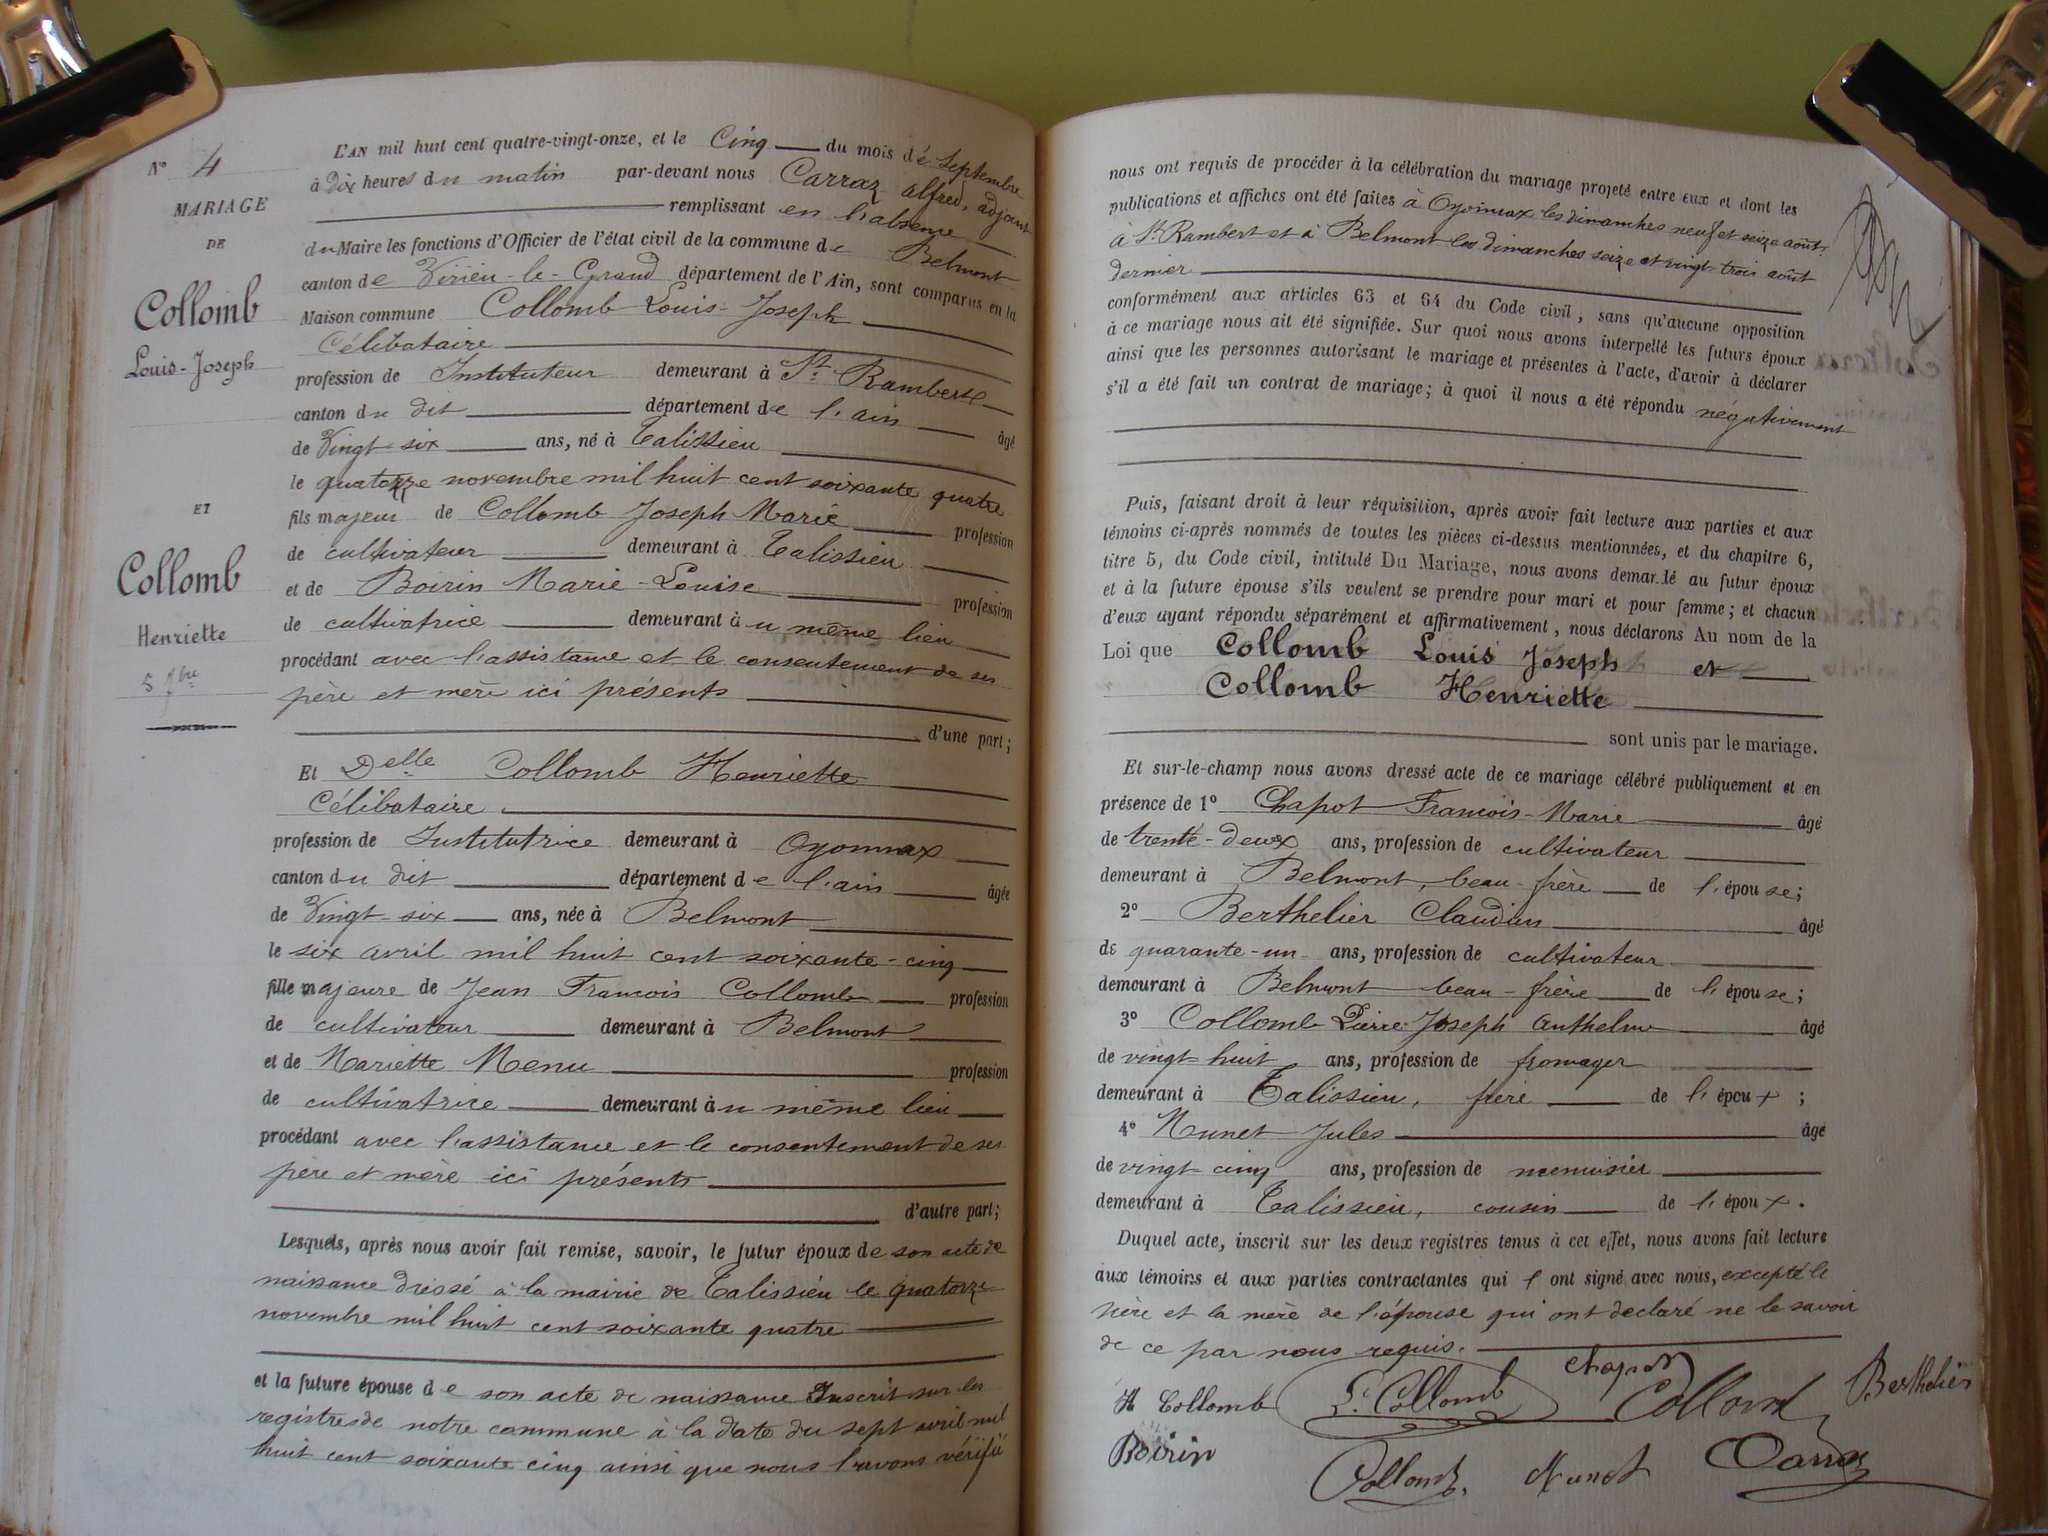 N° 4
MARIAGE
DE
Collomb
Louis-Joseph
ET
Collomb
Henriette
5 7bre
L'AN mil huit cent quatre-vingt-onze, et le Cinq du mois de Septembre
à dix heures du matin par-devant nous Carraz Alfred, adjoint
remplissant en l'absence
du Maire les fonctions d'Officier de l'état civil de la commune de Belmont
canton de Virieu-le-Grand département de l'Ain, sont comparus en la
Maison commune Collomb Louis-Joseph
Célibataire
profession de Instituteur demeurant à St. Rambert
canton du dit département de l'ain âgé
de Vingt-six ans, né à Talissieu
le quatorze novembre mil huit cent soixante quatre
fils majeur de Collomb Joseph Marie profession
de cultivateur demeurant à Talissieu
et de Boirin Marie-Louise profession
de cultivatrice demeurant au même lieu
procédant avec l'assistance et le consentement de ses
père et mère ici présents
d'une part;
Et Delle Collomb Henriette
Célibataire
profession de Institutrice demeurant à Oyonnax
canton du dit département de l'ain âgée
de Vingt-six ans, née à Belmont
le six avril mil huit cent soixante-cinq
fille majeure de Jean François Collomb profession
de cultivateur demeurant à Belmont
et de Mariette Menu profession
de cultivatrice demeurant au même lieu
procédant avec l'assistance et le consentement de ses
père et mère ici présents
d'autre part;
Lesquels, après nous avoir fait remise, savoir, le futur époux de son acte de
naissance dressé à la mairie de Talissieu le quatorze
novembre mil huit cent soixante quatre
et la future épouse de son acte de naissance Inscrit sur les
registres de notre commune à la date du sept avril mil
huit cent soixante cinq ainsi que nous l'avons vérifié
nous ont requis de procéder à la célébration du mariage projeté entre eux et dont les
publications et affiches ont été faites à Oyonnax les dimanches neuf et seize août,
à St Rambert et à Belmont les dimanches seize et vingt-trois août
dernier
conformément aux articles 63 et 64 du Code civil, sans qu'aucune opposition
à ce mariage nous ait été signifiée. Sur quoi nous avons interpellé les futurs époux
ainsi que les personnes autorisant le mariage et présentes à l'acte, d'avoir à déclarer
s'il a été fait un contrat de mariage; à quoi il nous a été répondu négativement
Puis, faisant droit à leur réquisition, après avoir fait lecture aux parties et aux
témoins ci-après nommés de toutes les pièces ci-dessus mentionnées, et du chapitre 6,
titre 5, du Code civil, intitulé Du Mariage, nous avons demandé au futur époux
et à la future épouse s'ils veulent se prendre pour mari et pour femme; et chacun
d'eux ayant répondu séparément et affirmativement, nous déclarons Au nom de la
Loi que Collomb Louis Joseph et
Collomb Henriette
sont unis par le mariage.
Et sur-le-champ nous avons dressé acte de ce mariage célébré publiquement et en
présence de 1° Chapot François-Marie âgé
de trente-deux ans, profession de cultivateur
demeurant à Belmont, beau-frère de l'épouse;
2° Berthelier Claudius âgé
de quarante-un ans, profession de cultivateur
demeurant à Belmont beau-frère de l'épouse;
3° Collomb Pierre Joseph Anthelme âgé
de vingt-huit ans, profession de fromager
demeurant à Talissieu, frère de l'époux;
4° Munet Jules âgé
de vingt cinq ans, profession de menuisier
demeurant à Talissieu, cousin de l'époux.
Duquel acte, inscrit sur les deux registres tenus à cet effet, nous avons fait lecture
aux témoins et aux parties contractantes qui l'ont signé avec nous, excepté le
père et la mère de l'épouse qui ont déclaré ne le savoir
de ce par nous requis.
H Collomb L. Collomb Chapot Collomb Berthelier
Boirin Collomb. Munet Carraz